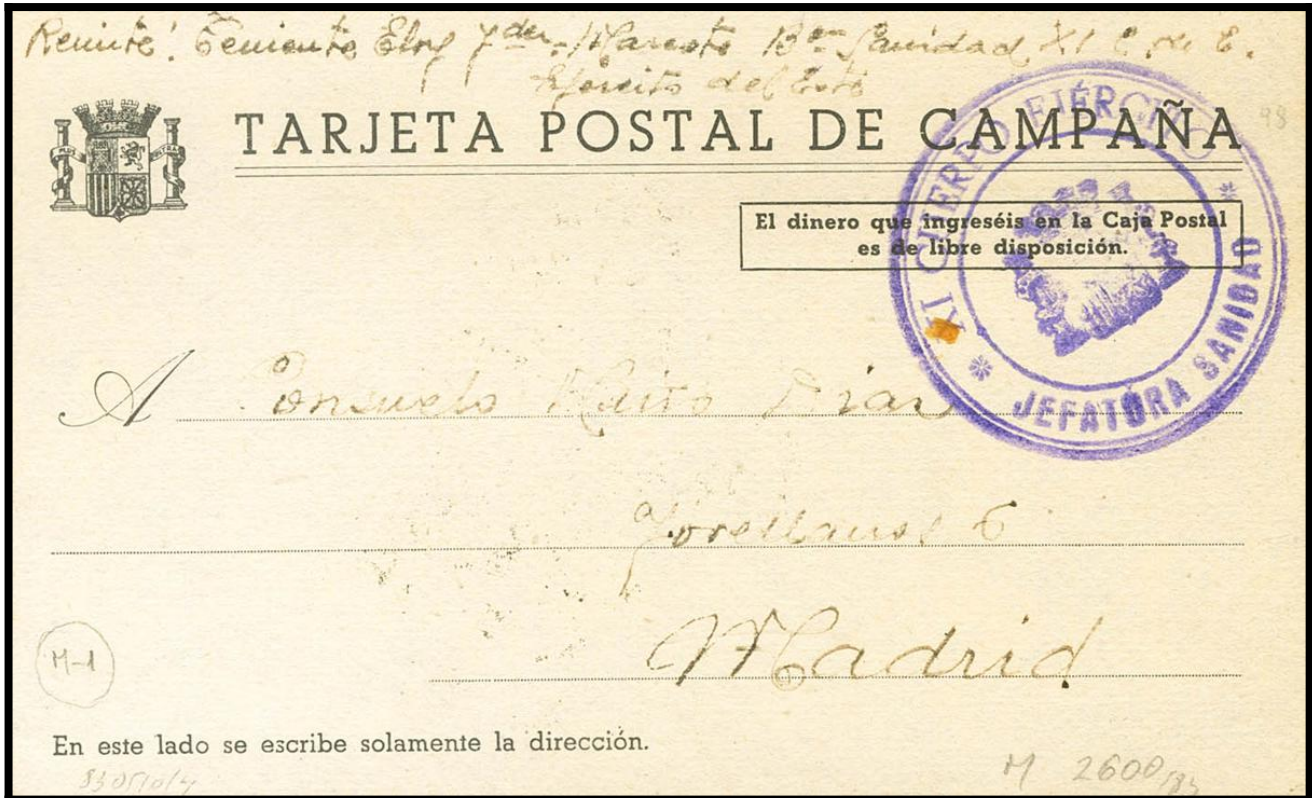 Remite: Teniente Eloy Maroto Bon Sanidad XI C. de E.
Ejercito del Este
TARJETA POSTAL DE CAMPAÑA
98
El dinero que ingreséis en la Caja Postal
es de libre disposición.
XI CUERPO EJÉRCITO
* JEFATURA SANIDAD *
A Consuelo Diaz
6
Madrid
M-1
En este lado se escribe solamente la dirección.
M 2600